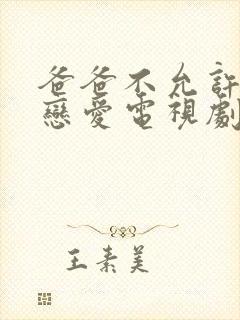 爸爸不允許
戀愛電視劇
王素美